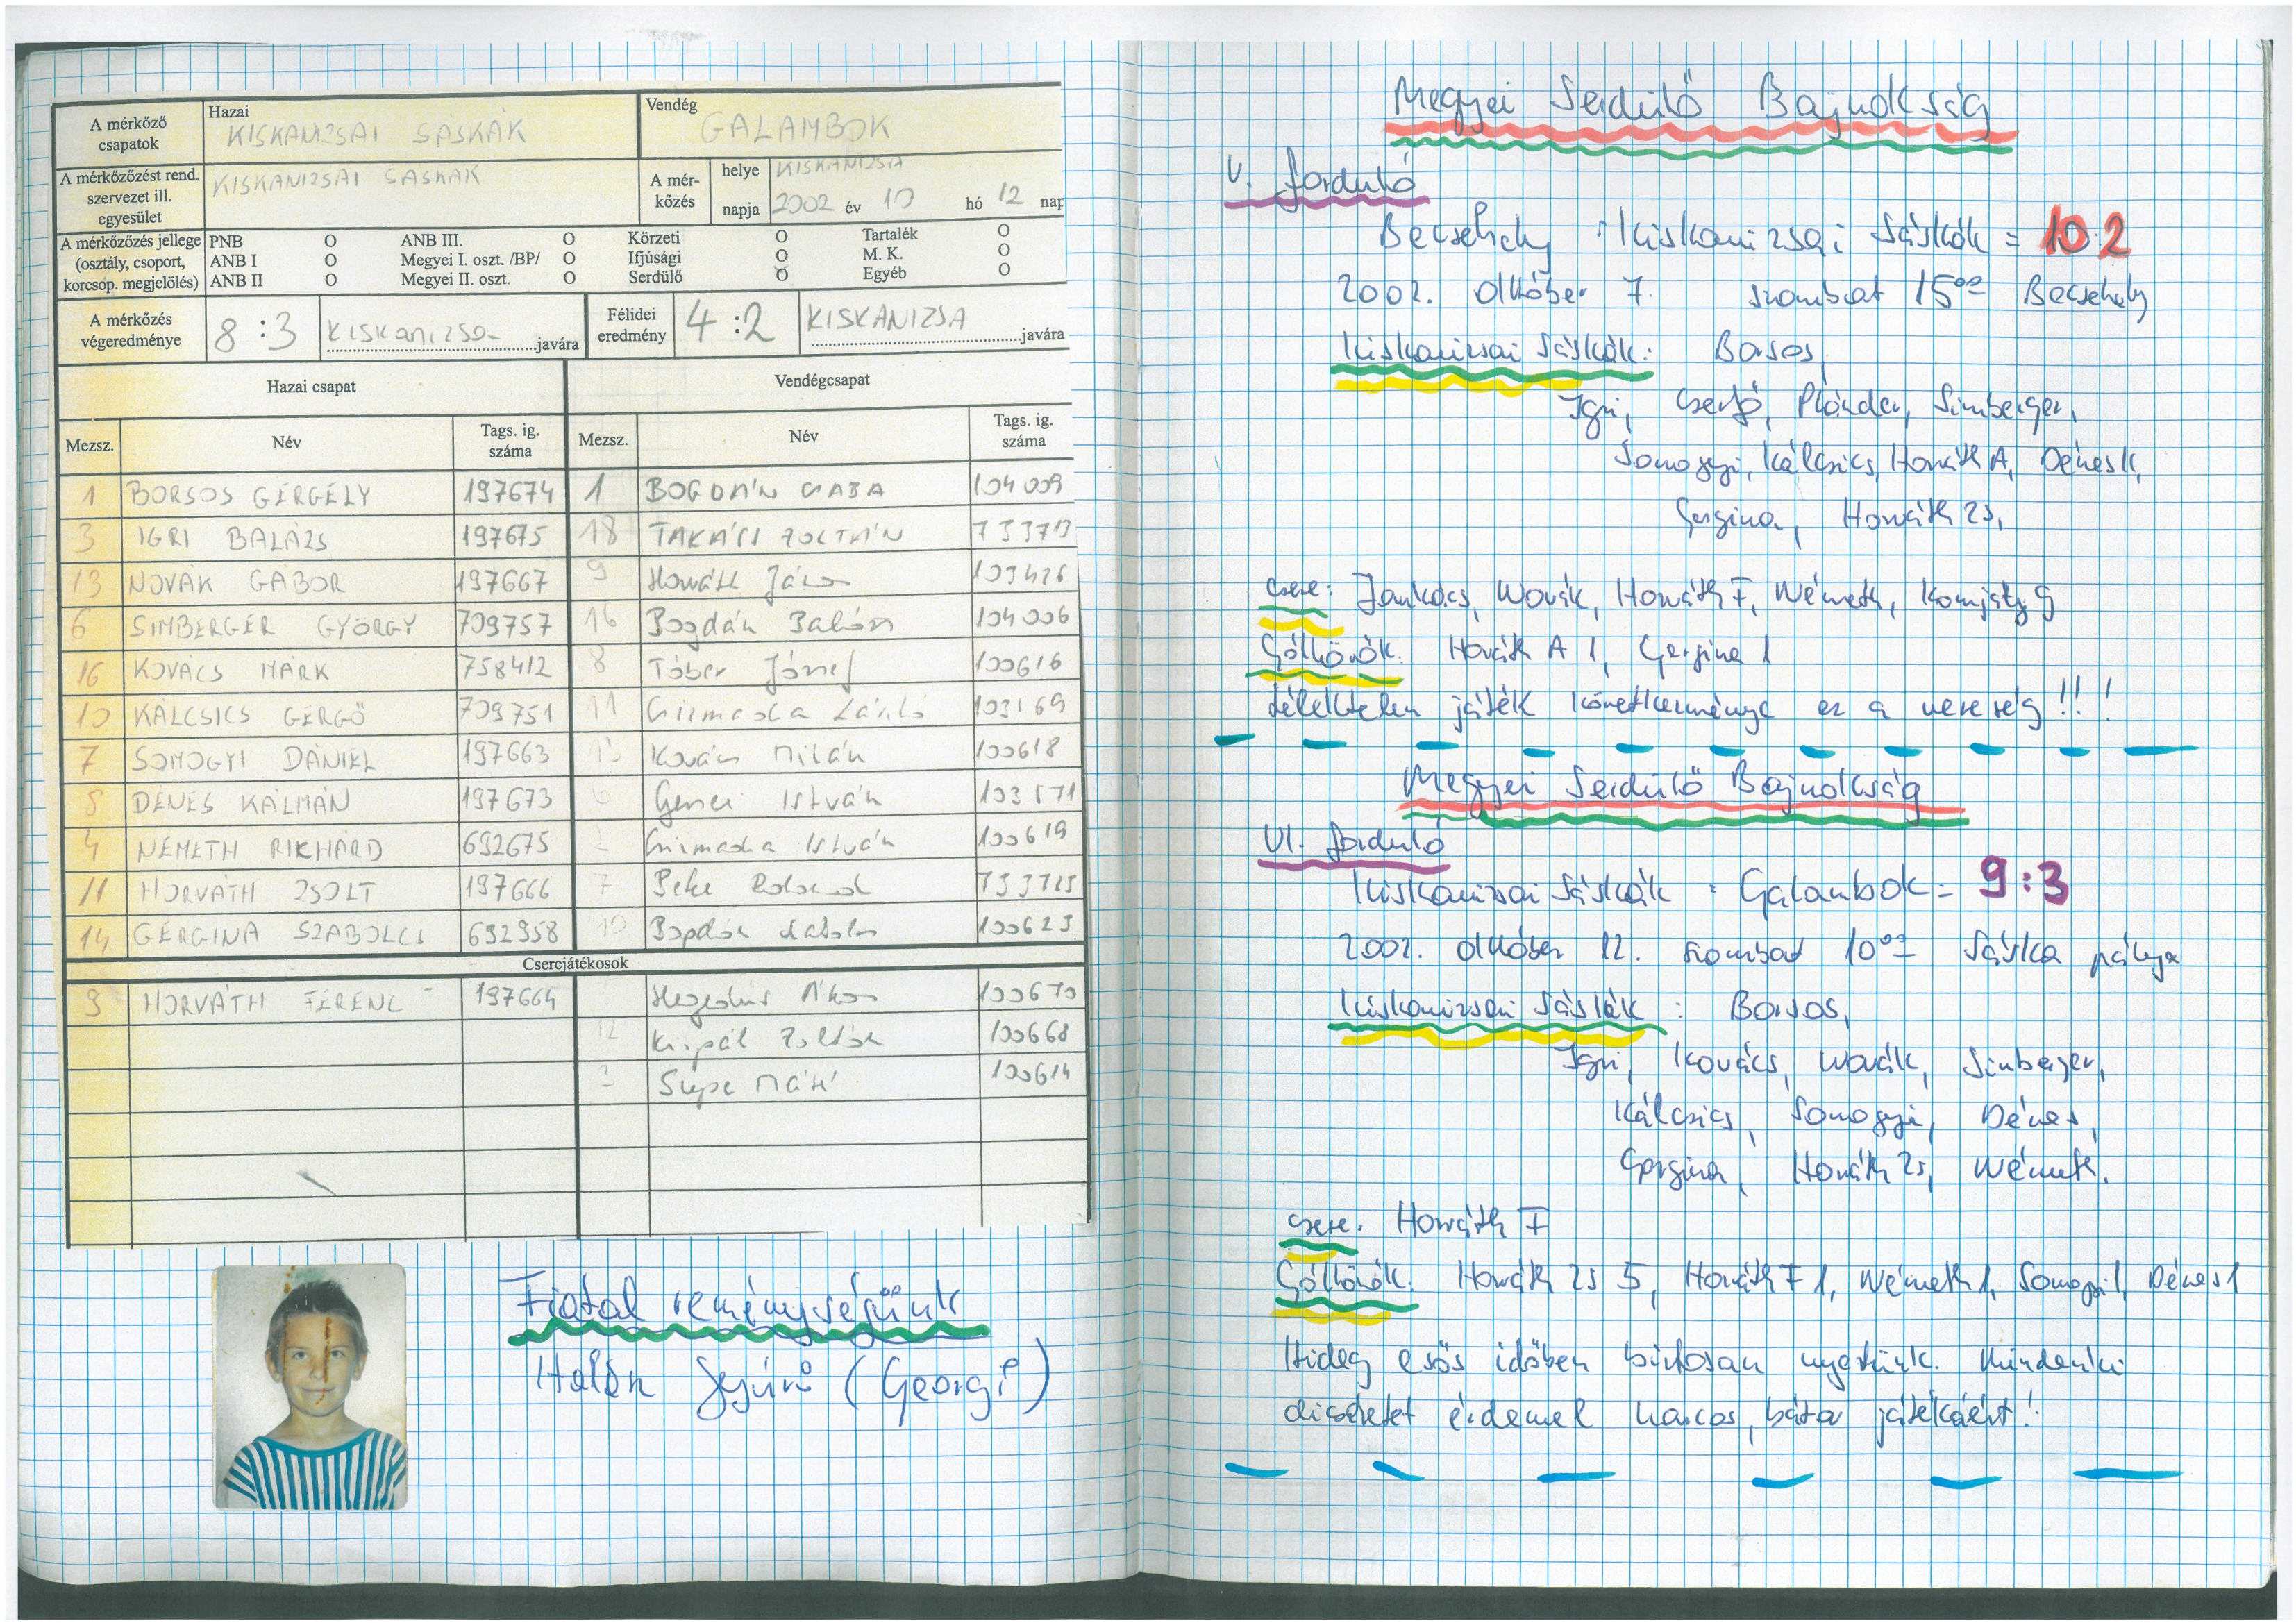 A mérkőző csapatok
Hazai
KISKANIZSAI SÁSKÁK
Vendég
GALAMBOK
A mérkőzőzést rend. szervezet ill. egyesület
KISKANIZSAI SÁSKÁK
A mér-kőzés
helye
KISKANIZSA
napja
2002 év 10 hó 12 nap
A mérkőzőzés jellege (osztály, csoport, korcsop. megjelölés)
PNB O ANB III. O Körzeti O Tartalék O
ANB I O Megyei I. oszt. /BP/ O Ifjúsági O M. K. O
ANB II O Megyei II. oszt. O Serdülő O Egyéb O
A mérkőzés végeredménye
8 : 3 Kiskanizsa javára
Félidei eredmény
4 : 2 KISKANIZSA javára
Hazai csapat Vendégcsapat
Mezsz. Név Tags. ig. száma Mezsz. Név Tags. ig. száma
1 BORSOS GERGELY 197674 1 BOGDÁN CSABA 104009
3 IGRI BALÁZS 197675 18 TAKÁCS ZOLTÁN 733713
13 NOVÁK GÁBOR 197667 9 Horváth János 103426
6 SIMBERGER GYÖRGY 709757 16 Bogdán Balázs 104006
16 KOVÁCS MÁRK 758412 8 Tóber József 100616
10 KÁLCSICS GERGŐ 709751 11 László 103169
7 SOMOGYI DÁNIEL 197663 Kovács Milán 100618
8 DÉNES KÁLMÁN 197673 6 István 103571
4 NÉMETH RIKHÁRD 692675 István 100619
11 HORVÁTH ZSOLT 197666 7 Beke Roland 733725
14 GERGINA SZABOLCS 692958 10 Bogdán 100623
Cserejátékosok
9 HORVÁTH FERENC 197664 Hegedűs Ákos 100670
12 Kripál Zoltán 100668
Máté 100614
Fiatal reménységünk
Halán Gyuri (Georgi)
Megyei Serdülő Bajnokság
V. forduló
Becsehely : Kiskanizsai Sáskák = 10:2
2002. október 7. szombat 15⁰⁰ Becsehely
Kiskanizsai Sáskák: Borsos,
Igri, Cserfő, Plánder, Simberger,
Somogyi, Kálcsics, Horváth A, Dénes K,
Gergina, Horváth Zs,
csere: Jankács, Novák, Horváth F, Németh, Komjáty G
Góllövők: Horváth A 1, Gergina 1
Lélektelen játék következménye ez a vereség!!!
Megyei Serdülő Bajnokság
VI. forduló
Kiskanizsai Sáskák : Galambok = 9:3
2002. október 12. szombat 10⁰⁰ Sáska pálya
Kiskanizsai Sáskák : Borsos,
Igri, Kovács, Novák, Simberger,
Kálcsics, Somogyi, Dénes,
Gergina, Horváth Zs, Németh.
csere: Horváth F
Góllövők: Horváth Zs 5, Horváth F 1, Németh 1, Somogyi 1, Dénes 1
Hideg esős időben biztosan nyertünk. Mindenki
dicséretet érdemel harcos, bátor játékáért!